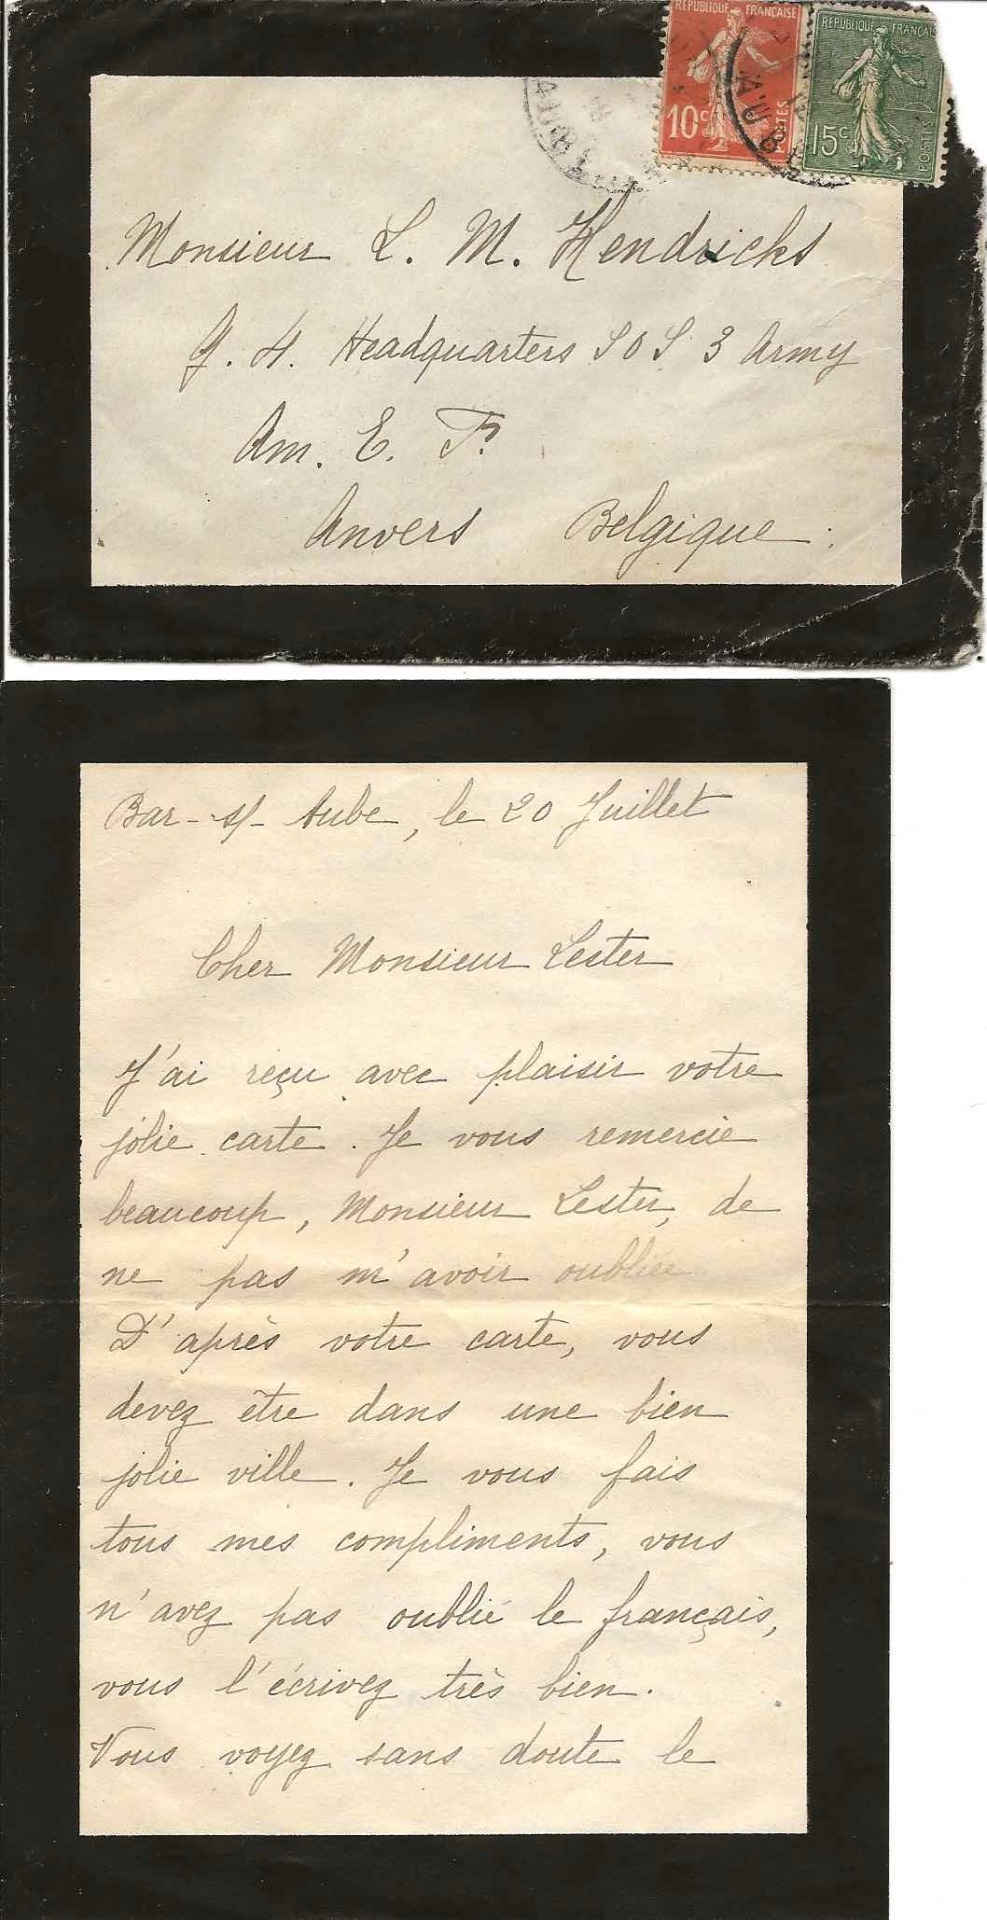 RÉPUBLIQUE FRANÇAISE
10c
POSTES
RÉPUBLIQUE FRANÇAISE
15c
POSTES
Monsieur L. M. Hendricks
G. H. Headquarters S O S 3 Army
Am. E. F.
Anvers Belgique.
Bar-s/-Aube, le 20 Juillet
Cher Monsieur Lester
J'ai reçu avec plaisir votre
jolie carte. Je vous remercie
beaucoup, Monsieur Lester, de
ne pas m'avoir oubliée
D'après votre carte, vous
devez être dans une bien
jolie ville. Je vous fais
tous mes compliments, vous
n'avez pas oublié le français,
vous l'écrivez très bien.
Vous voyez sans doute le